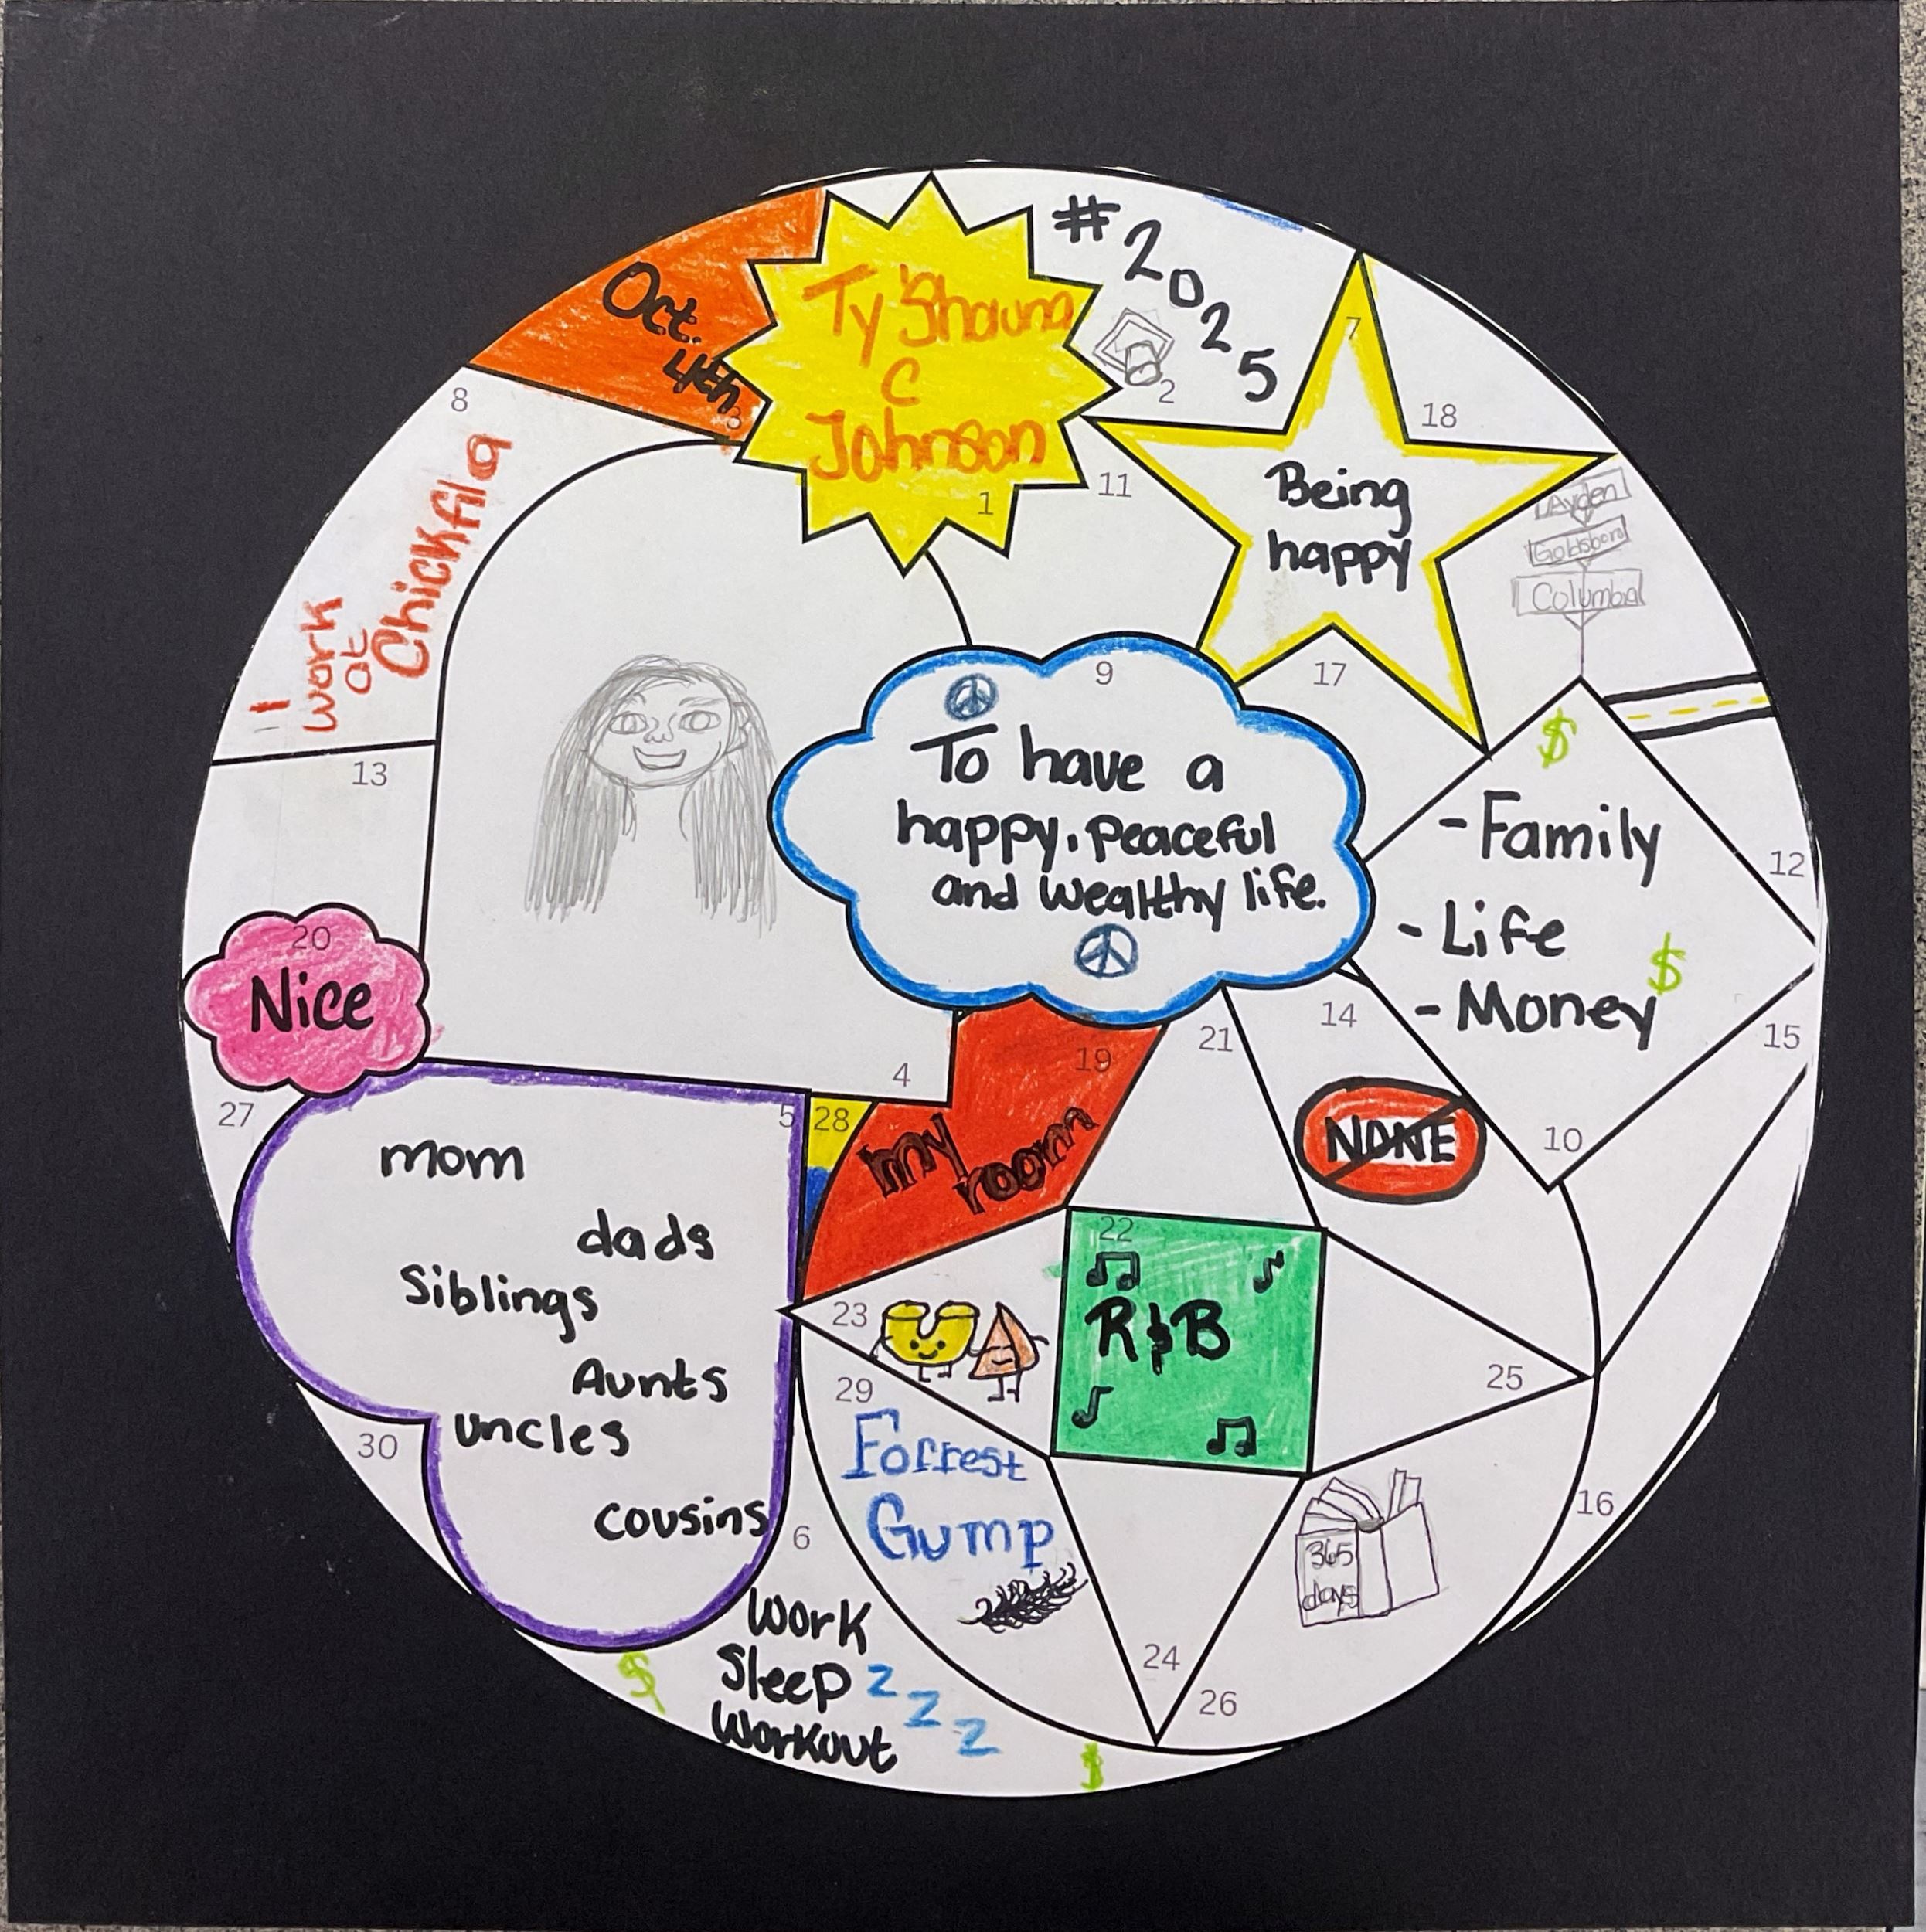 Oct.
4th
3
Ty'Shauna
C
Johnson
1
#2025
2
7
Being
happy
18
Ayden
Goldsboro
Columbia
8
I
work
at
Chickfila
11
17
9
To have a
happy, peaceful
and wealthy life.
$
- Family
- Life
- Money
$
10
12
13
20
Nice
4
19
my
room
21
14
NONE
15
27
5
28
mom
dads
Siblings
Aunts
uncles
cousins
22
R&B
23
25
29
Forrest
Gump
30
6
Work
Sleep z z z
Workout
$
$
24
26
365
days
16